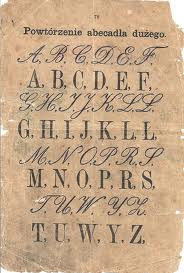 78
Powtórzenie abecadła dużego.
A, B, C, D, E, F,
A, B, C, D, E, F,
G, H, I, J, K, L, Ł,
G, H, I, J, K, L, Ł,
M, N, O, P, R, S,
M, N, O, P, R, S,
T, U, W, Y, Z,
T, U, W, Y, Z,